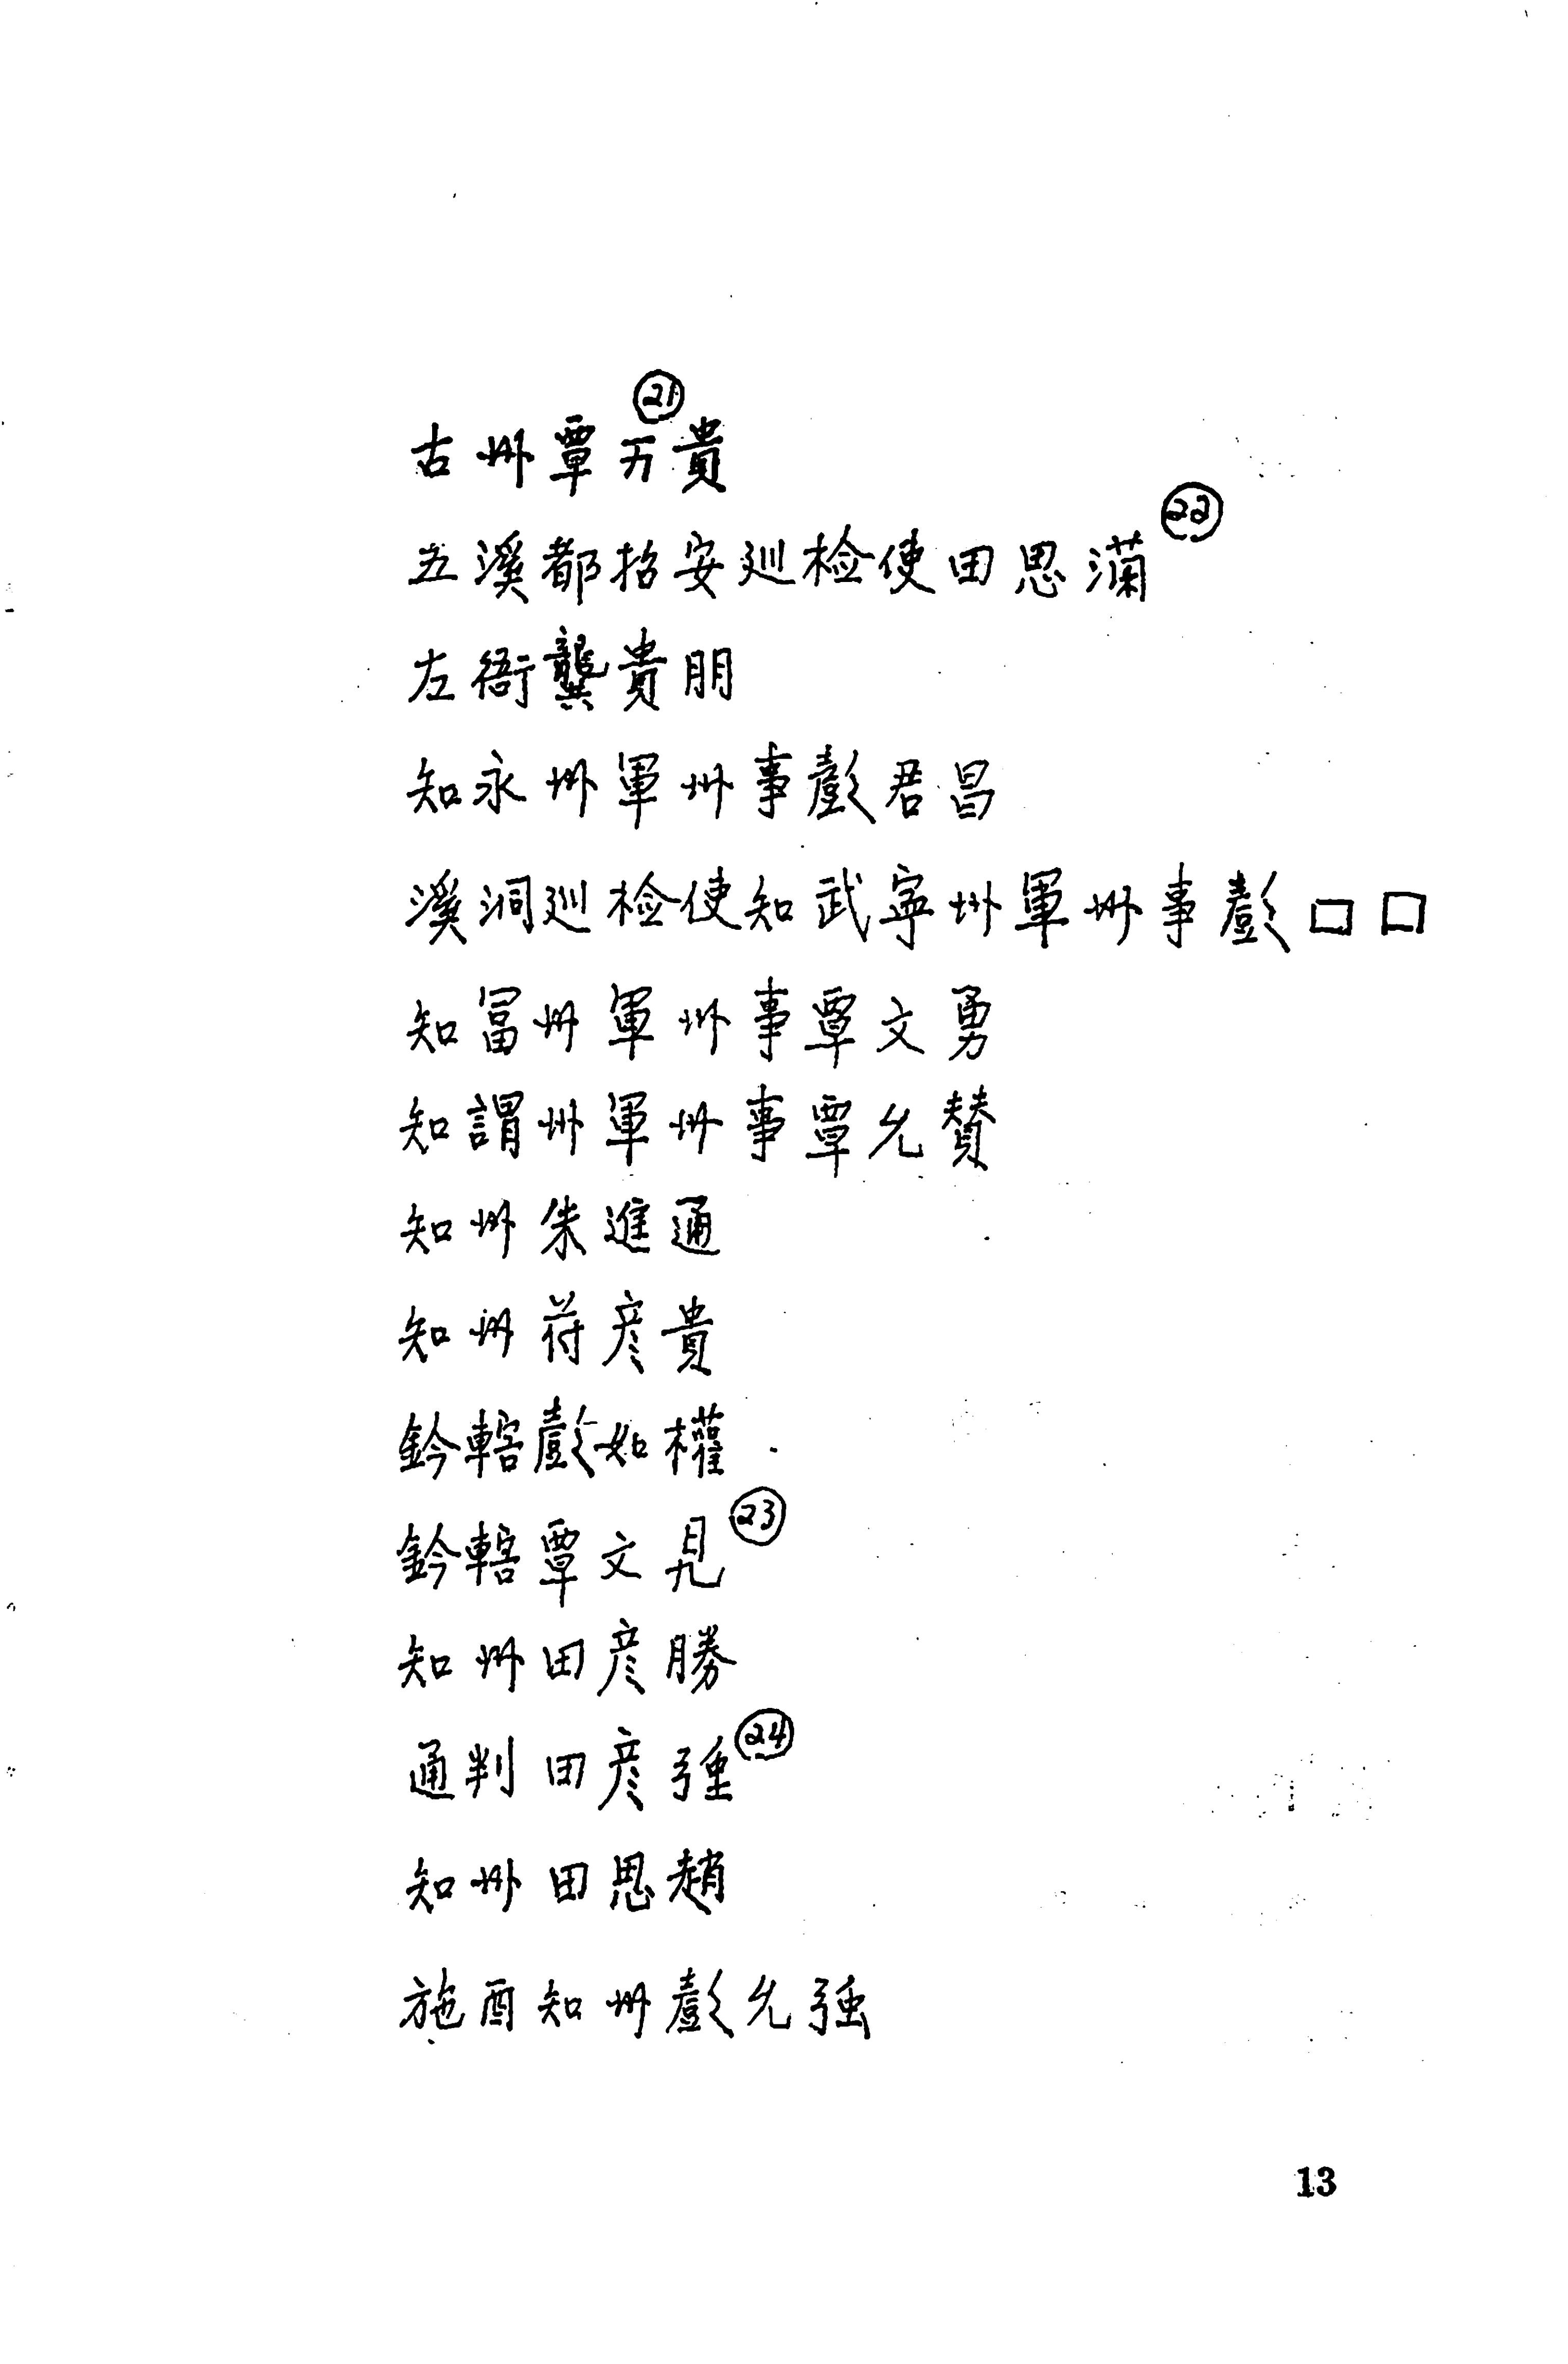 古州覃万㉑貴
五溪都招安廵检使田思满㉒
左衙龔貴朋
知永州軍州事彭君昌
溪洞廵检使知武寧州軍州事彭口口
知冨州軍州事覃文勇
知謂州軍州事覃允賛
知州朱進通
知州苻彦貴
鈐轄彭如權
鈐轄覃文見㉓
知州田彦勝
通判田彦强㉔
知州田思趙
施酉知州彭允强
13